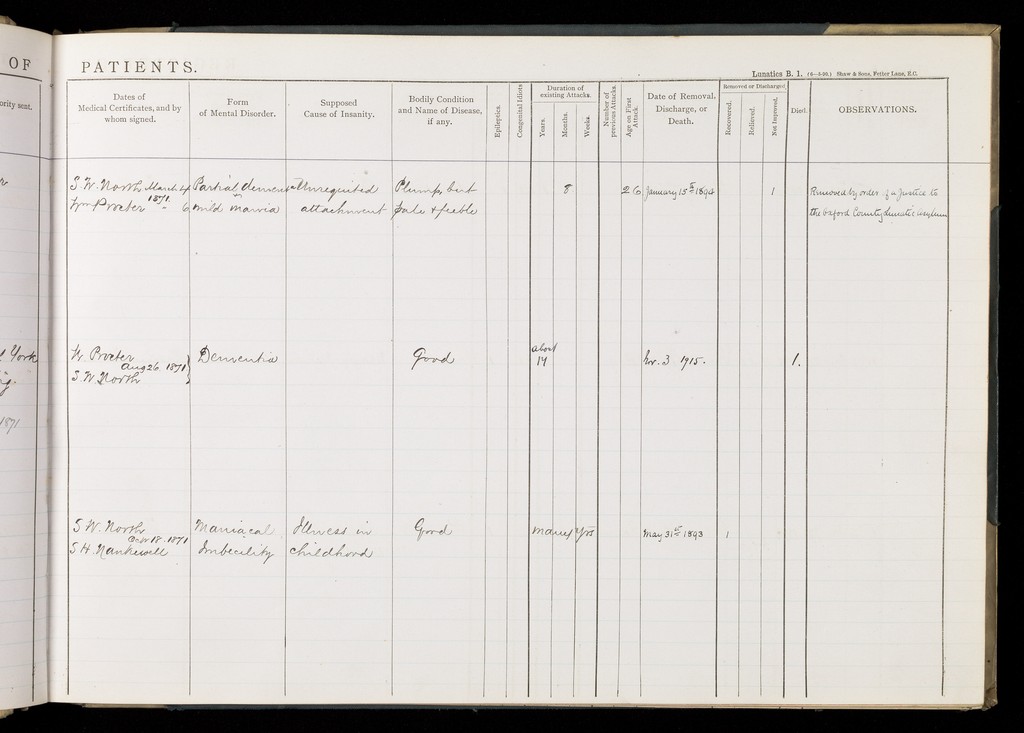 OF
PATIENTS.
Lunatics B. 1. (6—3-90.) Shaw & Sons, Fetter Lane, E.C.
ority sent.
Dates of
Medical Certificates, and by
whom signed.
Form
of Mental Disorder.
Supposed
Cause of Insanity.
Bodily Condition
and Name of Disease,
if any.
Epileptics.
Congenital Idiots
Duration of
existing Attacks.
Years.
Months.
Weeks.
Number of
previous Attacks.
Age on First
Attack.
Date of Removal,
Discharge, or
Death.
Removed or Discharged
Recovered.
Relieved.
Not Improved.
Died.
OBSERVATIONS.
S. W. North March 4 Partial dementia Unrequited Plump, but 8 26 January 15th 1894 1 Removed by order of a Justice to
1871
Wm Procter 6 mild mania attachment pale & feeble the Oxford County Lunatic Asylum
York
W. Procter Dementia Good about 14 Nov. 3 1915. 1.
Aug 26 1871
S. W. North
1871
S W. North Maniacal Illness in Good many yrs May 31st 1893 1
18. 1871
S H. Imbecility childhood